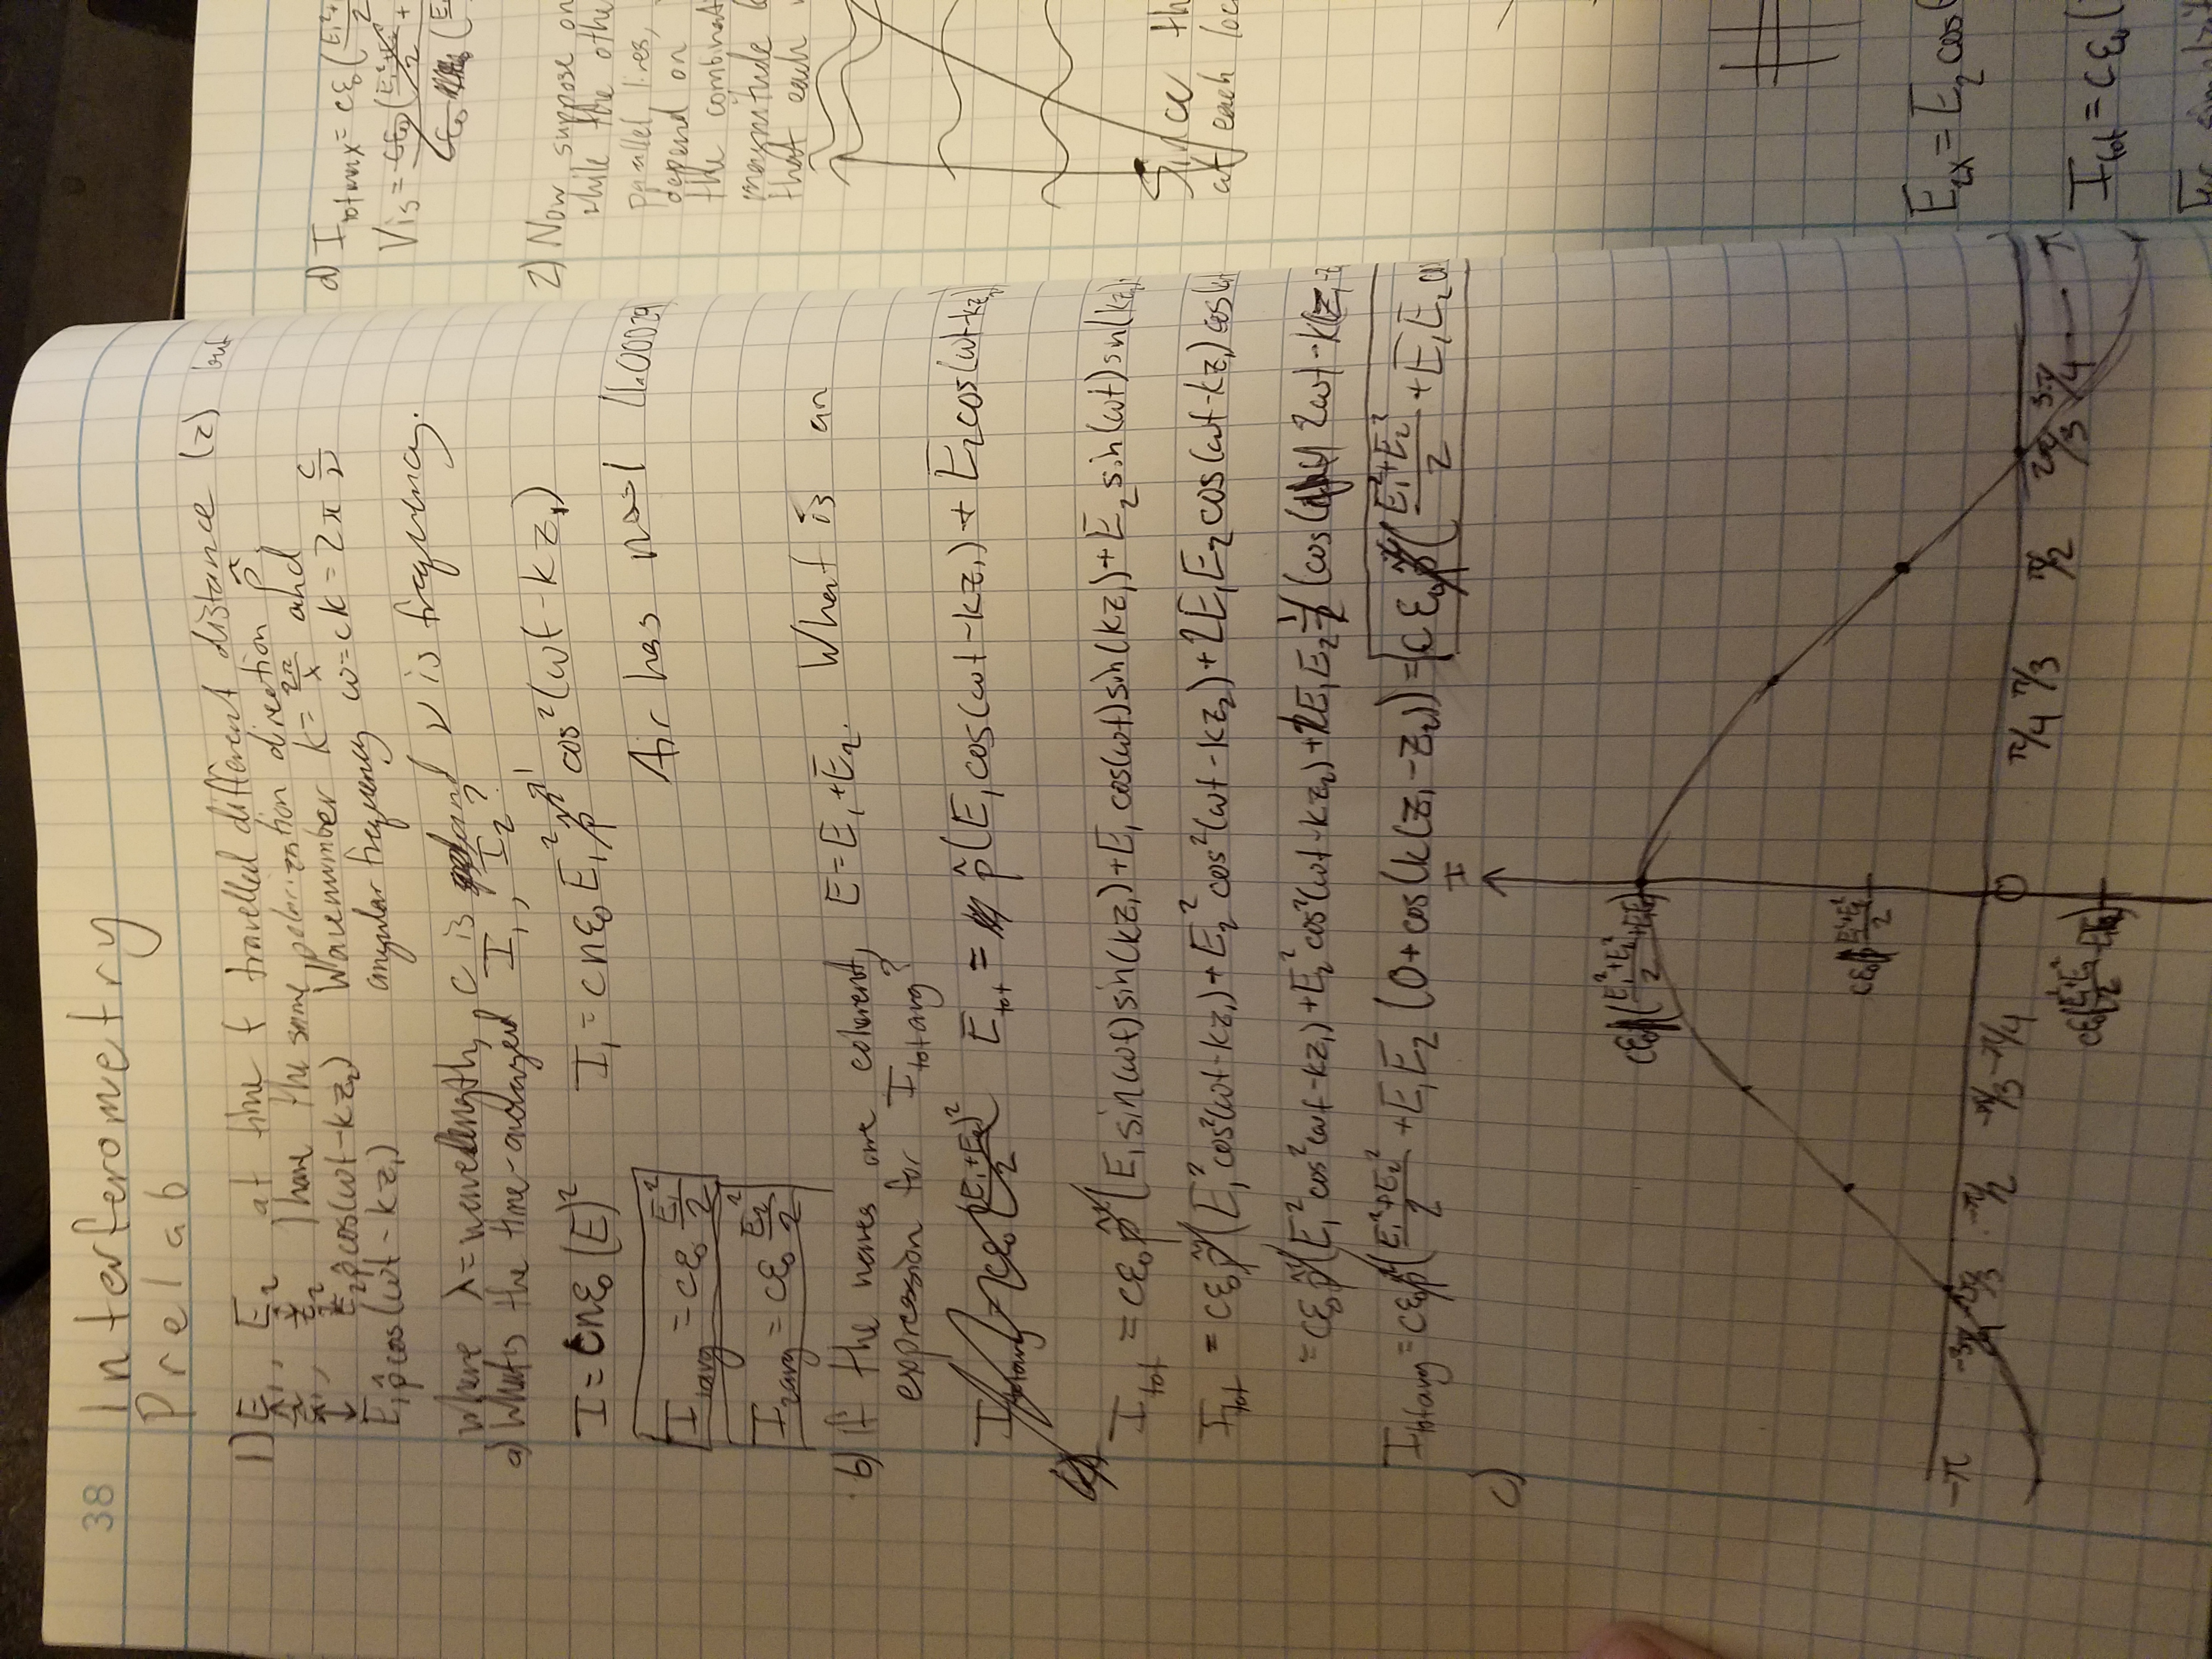 38
Interferometry
Prelab
1) E₁, E₂ at time t travelled different distance (z) but
z₁, z₂ have the same polarization direction p̂.
E₂p̂cos(ωt-kz₂) Wavenumber k=2π/λ and
E₁p̂cos(ωt-kz₁) angular frequency ω=ck=2π c/ν
where λ=wavelength, c is and ν is frequency.
a) What's the time-averaged I₁, I₂?
I=cnε₀(E)² I₁=cnε₀E₁²p̂² cos²(ωt-kz₁)
Air has n≈1 (1.00029)
I₁avg=cε₀ E₁²/2
I₂avg=cε₀ E₂²/2
b) If the waves are coherent, E=E₁+E₂. What is an
expression for Itotavg?
Itotavg=cε₀(E₁+E₂)²/2 Etot= p̂(E₁cos(ωt-kz₁)+E₂cos(ωt-kz₂)
Itot=cε₀p̂²(E₁sin(ωt)sin(kz₁)+E₁cos(ωt)sin(kz₁)+E₂sin(ωt)sin(kz₂)
Itot=cε₀p̂²(E₁²cos²(ωt-kz₁)+E₂²cos²(ωt-kz₂)+2E₁E₂cos(ωt-kz₁)cos(ωt
=cε₀p̂²(E₁²cos²(ωt-kz₁)+E₂²cos²(ωt-kz₂)+2E₁E₂ 1/2 (cos( 2ωt-k(z₁-z
Itotavg=cε₀p̂²(E₁²+E₂²/2+E₁E₂(0+cos(k(z₁-z₂))=cε₀p̂²(E₁²+E₂²/2+E₁E₂co
c)
I
cε₀(E₁²+E₂²/2+E₁E₂)
cε₀ E₁²+E₂²/2
-π -3π/4 -2π/3 -π/2 -π/3 -π/4 0 π/4 π/3 π/2 2π/3 3π/4 π
cε₀(E₁²+E₂²/2-E₁E₂)
d) Itotmax=cε₀(E₁²+
Vis=cε₀(E₁²+E₂²/2+
cε₀ (E
2) Now suppose on
while the othe
parallel, lines,
depend on
the combinat
magnitude
that each
Since th
at each loc
E₂ₓ=E₂cos(
Itot=cε₀(